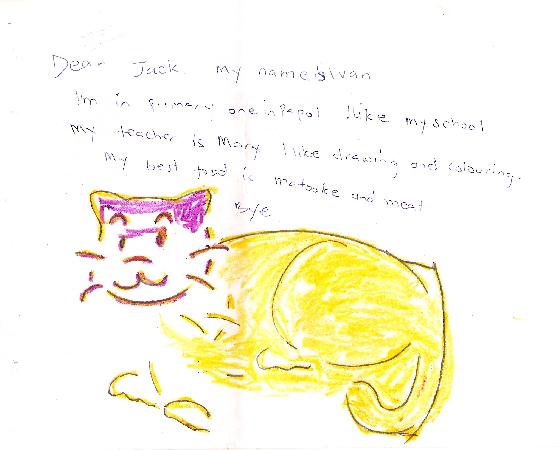 Dear Jack. My name is Ivan
I'm in primary one in Pepol I like my school
My teacher is Mary I like drawing and colouring.
My best food is matooke and meat
Bye